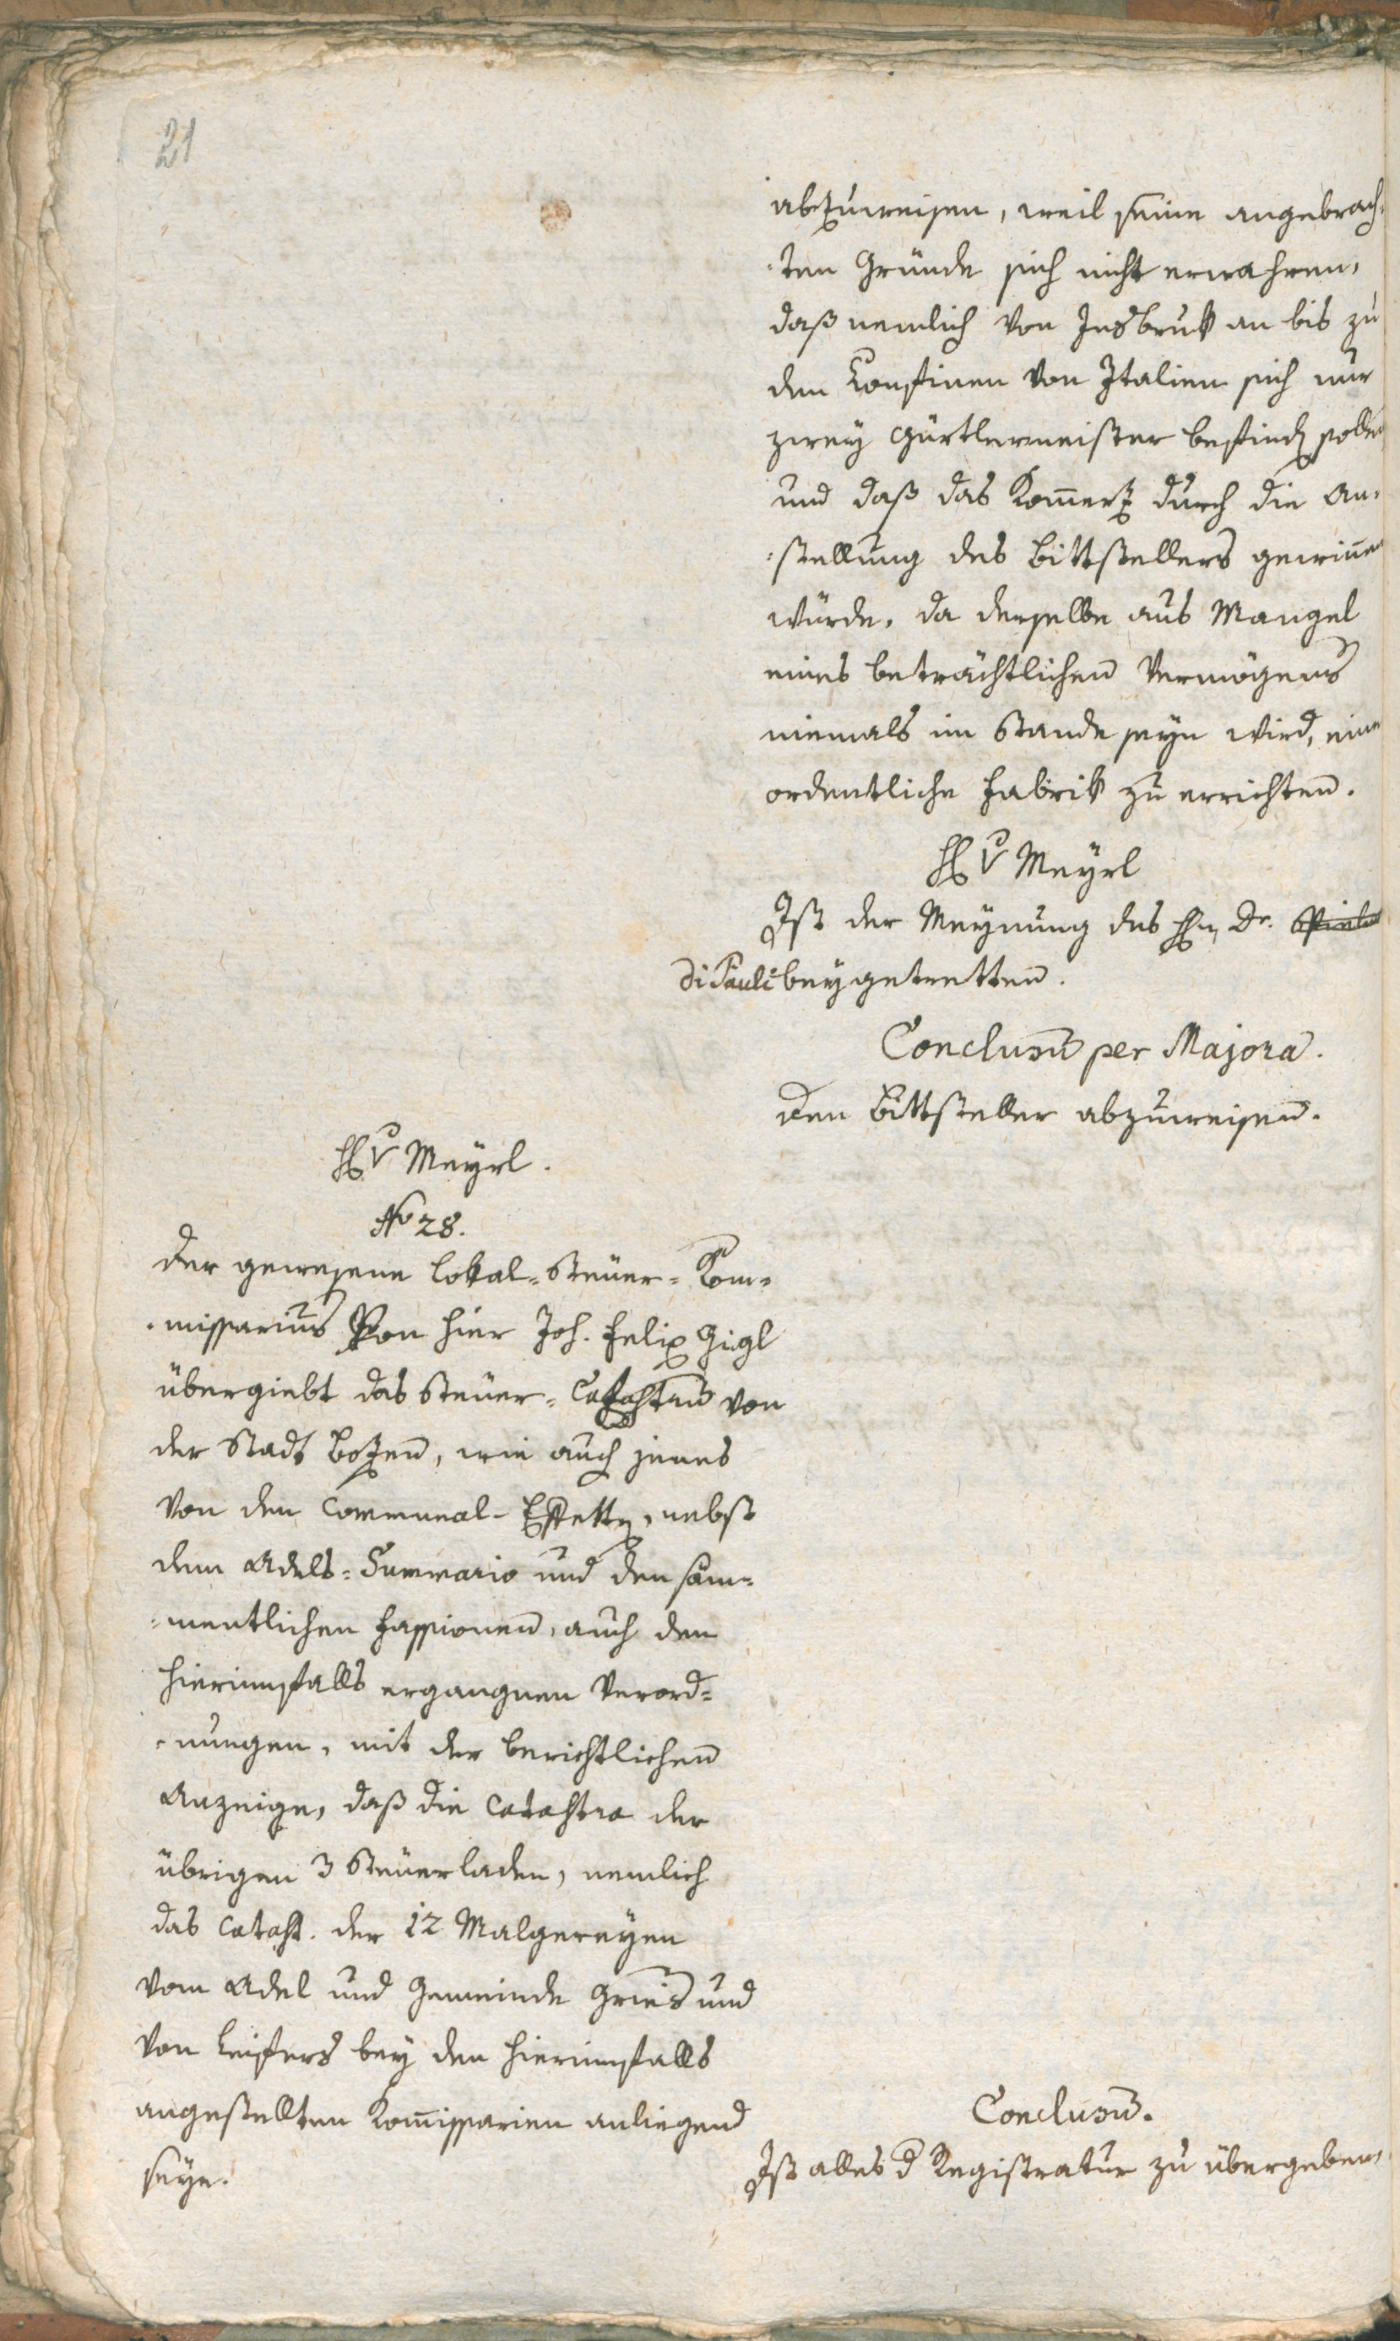 21
abzuweisen, weil seine angebrach-
-ten Gründe sich nicht erwahren,
daß nemlich von Insbruk an bis zu
den Konfinen von Italien sich nur
zwey Gürtlermeister befinden sollen
und daß das Kom̄erz durch die An-
-stellung des Bittstellers gewin̄en
würde, da derselbe aus Mangel
eines beträchtlichen Vermögens
niemals im Stande seyn wird, eine
ordentliche Fabrik zu errichten.
H v Meyrl
Ist der Meynung des Hn Dr.
di Pauli beygetretten.
Conclusū per Majora.
Den Bittsteller abzuweisen.
H v Meyrl.
No 28.
Der gewesene Lokal-Steuer-Kom-
-missarius von hier Joh. Felix Gigl
übergiebt das Steuer-Catastrū von
der Stadt Bozen, wie auch jenes
von den Communal-Effekten, nebst
dem Adels-Summario und den säm-
-mentlichen Fassionen, auch den
hierinnfalls ergangnen Verord-
-nungen, mit der berichtlichen
Anzeige, daß die Catastra der
übrigen 3 Steuerladen, nemlich
das Catast. der 12 Malgereyen
vom Adel und Gemeinde Gries und
von Leifers bey den hierinnfalls
angestellten Kom̄issarien anliegend
seye.
Conclusū.
Ist alles d Registratur zu übergeben,